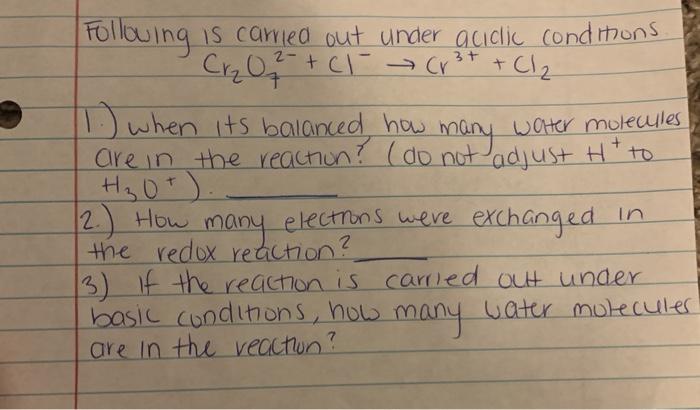 Following is carried out under acidic conditions.
Cr₂O₇²⁻ + Cl⁻ → Cr³⁺ + Cl₂
1.) when its balanced, how many water molecules
are in the reaction? (do not adjust H⁺ to
H₃O⁺). ______
2.) How many electrons were exchanged in
the redox reaction? ______
3) If the reaction is carried out under
basic conditions, how many water molecules
are in the reaction?